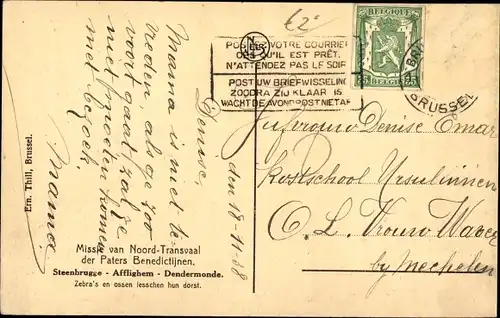 €2⁻
POSTEZ VOTRE COURRIER
DES QU'IL EST PRÊT.
N'ATTENDEZ PAS LE SOIR
POST UW BRIEFWISSELING
ZOODRA ZIJ KLAAR IS
WACHT DE AVONDPOST NIET AF
BELGIQUE
35 BELGIË 35
BRUSSEL
Denise, den 18-11-38
Mama is niet te
vreden als ge zoo
voort gaat zal ze
niet moeten komen
met bezoek.
Mama
Juffrouw Denise Omar
Kostschool Ursulinnen
O. L. Vrouw Waver
by Mechelen
Ern. Thill, Brussel.
Missie van Noord-Transvaal
der Paters Benedictijnen.
Steenbrugge - Afflighem - Dendermonde.
Zebra's en ossen lesschen hun dorst.